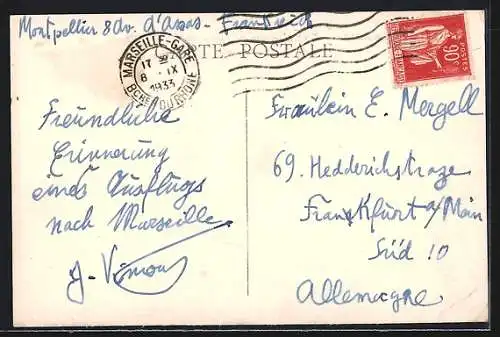 Montpellier 8 Av. d'Assas - Frankreich
CARTE POSTALE
MARSEILLE-GARE
17
8 - IX
1933
BCHES DU RHONE
90c
POSTES
Freundliche
Erinnerung
eines Ausflugs
nach Marseille.
Fräulein E. Mergell
69. Hedderichstraze
Frankfurt a/Main
Süd 10
Allemagne